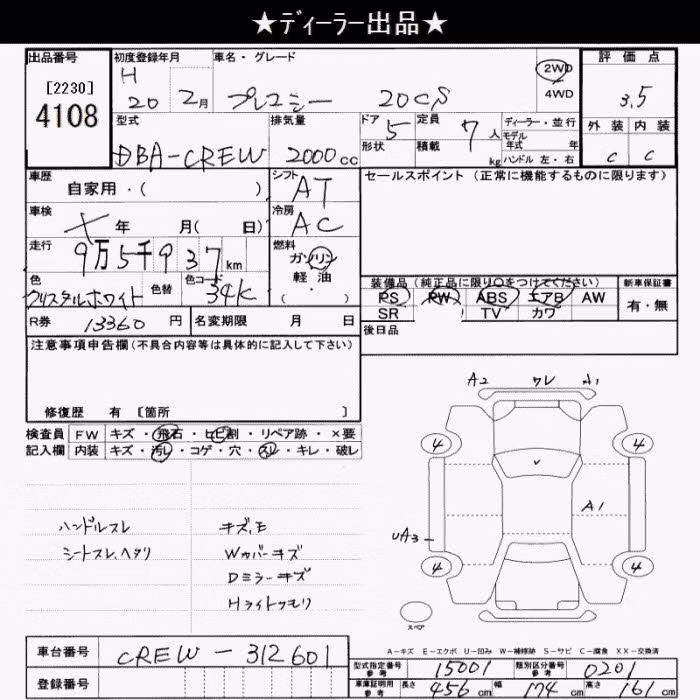 ★ディーラー出品★
出品番号 初度登録年月 車名・グレード 評価点
[2230] H 20 2月 プレマシー 20CS 2WD 4WD 3.5
4108 型式 排気量 ドア 5 定員 7 人 ディーラー・並行 外装 内装
DBA-CREW 2000cc 形状 積載 kg モデル年式 年 C C
ハンドル 左・右
車歴 自家用・( ) シフト AT セールスポイント (正常に機能するものに限ります)
車検 年 月( 日) 冷房 AC
走行 9万5千937km 燃料 ガソリン
色 クリスタルホワイト 色替 色コード 34K 軽・油 ( ・ )
装備品 (純正品に限り○をつけてください) 新車保証書
PS PW ABS エアB AW 有・無
SR TV カワ
R券 13360 円 名変期限 月 日 後日品
注意事項申告欄(不具合内容等は具体的に記入して下さい)
修復歴 有 [箇所 ]
検査員 FW キズ・飛石・ヒビ割・リペア跡・×要
記入欄 内装 キズ・汚レ・コゲ・穴・スレ・キレ・破レ
A2 ワレ A1
4 4
ハンドルスレ キズ,E A1
シートスレ、ヘタリ Wカバーキズ UA3
Dミラーキズ 4 4
Hライトクモリ
スペア
A-キズ E-エクボ U-凹み W-補修跡 S-サビ C-腐食 XX-交換済
車台番号 CREW-312601
型式指定番号 参考 15001 類別区分番号 参考 0201
登録番号 車庫証明用 参考 長さ 456 cm 幅 174 cm 高さ 161 cm